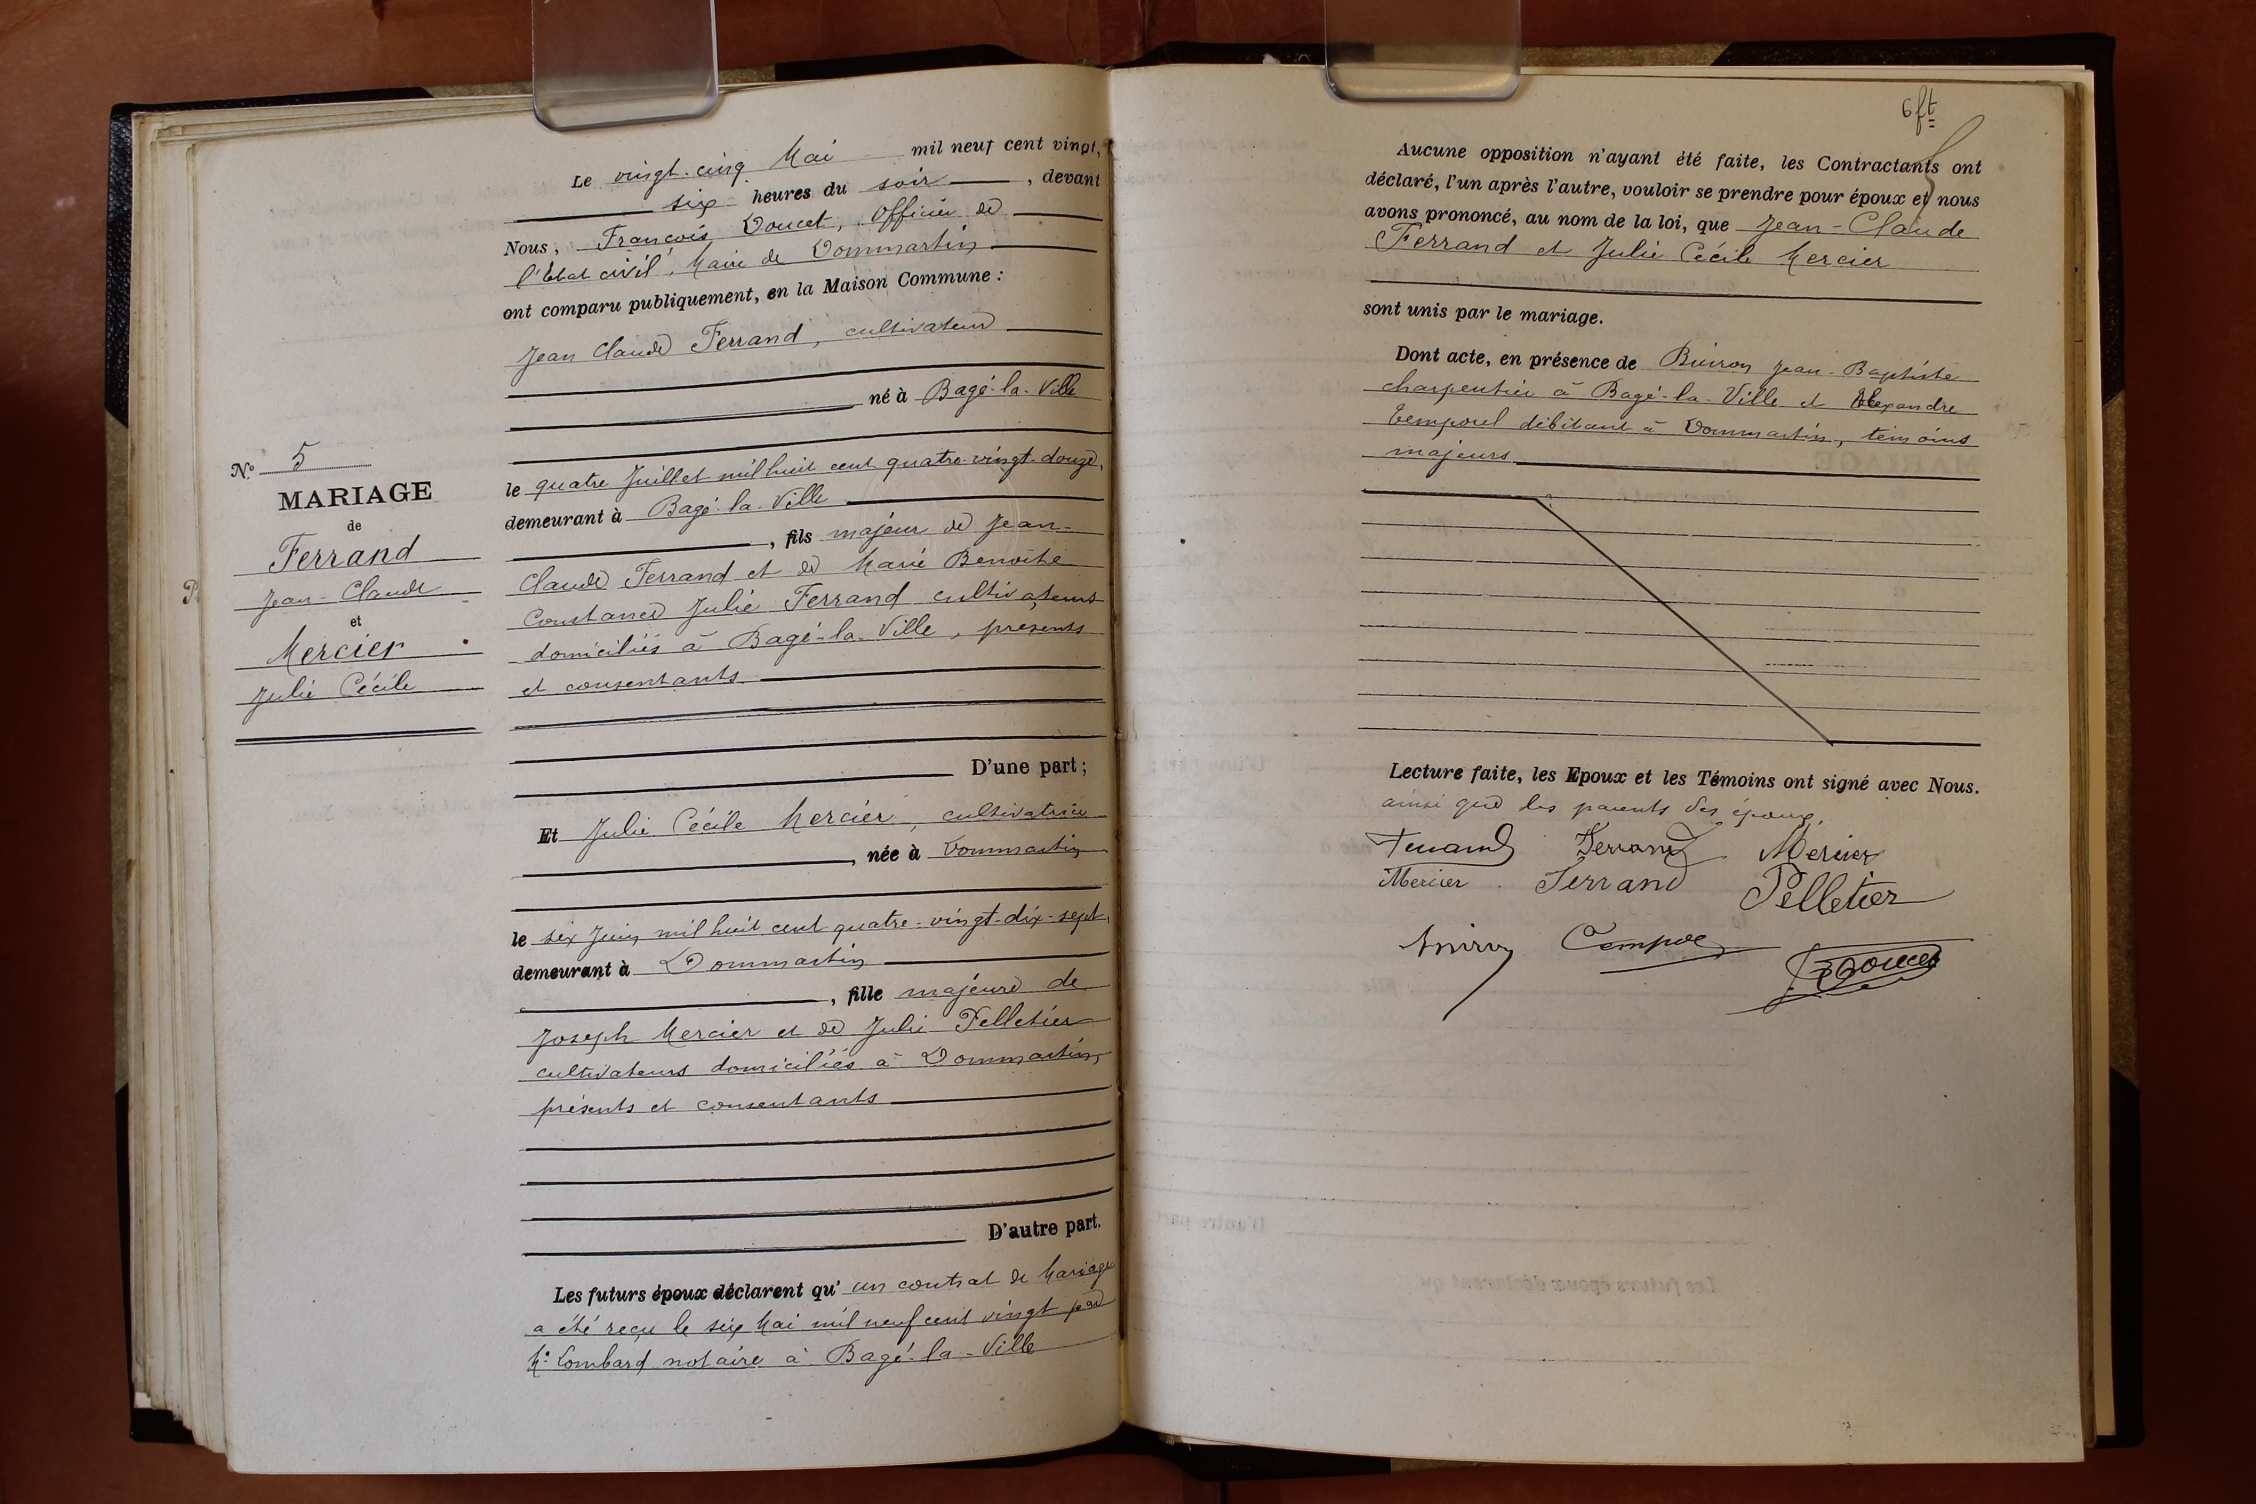 N.° 5
MARIAGE
de
Ferrand
Jean-Claude
et
Mercier
Julie Cécile
Le vingt-cinq Mai mil neuf cent vingt,
six heures du soir, devant
Nous, François Doucet, Officier de
l'Etat civil, Maire de Dommartin
ont comparu publiquement, en la Maison Commune :
Jean Claude Ferrand, cultivateur
né à Bagé-la-Ville
le quatre Juillet mil huit cent quatre-vingt-douze,
demeurant à Bagé-la-Ville
, fils majeur de Jean-
Claude Ferrand et de Marie Benoîte
Constance Julie Ferrand cultivateurs
domiciliés à Bagé-la-Ville, présents
et consentants
D'une part ;
Et Julie Cécile Mercier, cultivatrice
, née à Dommartin
le six Juin mil huit cent quatre-vingt-dix-sept,
demeurant à Dommartin
, fille majeure de
Joseph Mercier et de Julie Pelletier
cultivateurs domiciliés à Dommartin,
présents et consentants
D'autre part.
Les futurs époux déclarent qu' un contrat de Mariage
a été reçu le six Mai mil neuf cent vingt par
Me Lombard notaire à Bagé-la-Ville
6ft
Aucune opposition n'ayant été faite, les Contractants ont
déclaré, l'un après l'autre, vouloir se prendre pour époux et nous
avons prononcé, au nom de la loi, que Jean-Claude
Ferrand et Julie Cécile Mercier
sont unis par le mariage.
Dont acte, en présence de Buiron Jean-Baptiste
charpentier à Bagé-la-Ville et Alexandre
Temporel débitant à Dommartin, témoins
majeurs
Lecture faite, les Epoux et les Témoins ont signé avec Nous.
ainsi que les parents des époux.
Ferrand Ferrand Mercier
Mercier Ferrand Pelletier
Buiron Temporel Doucet